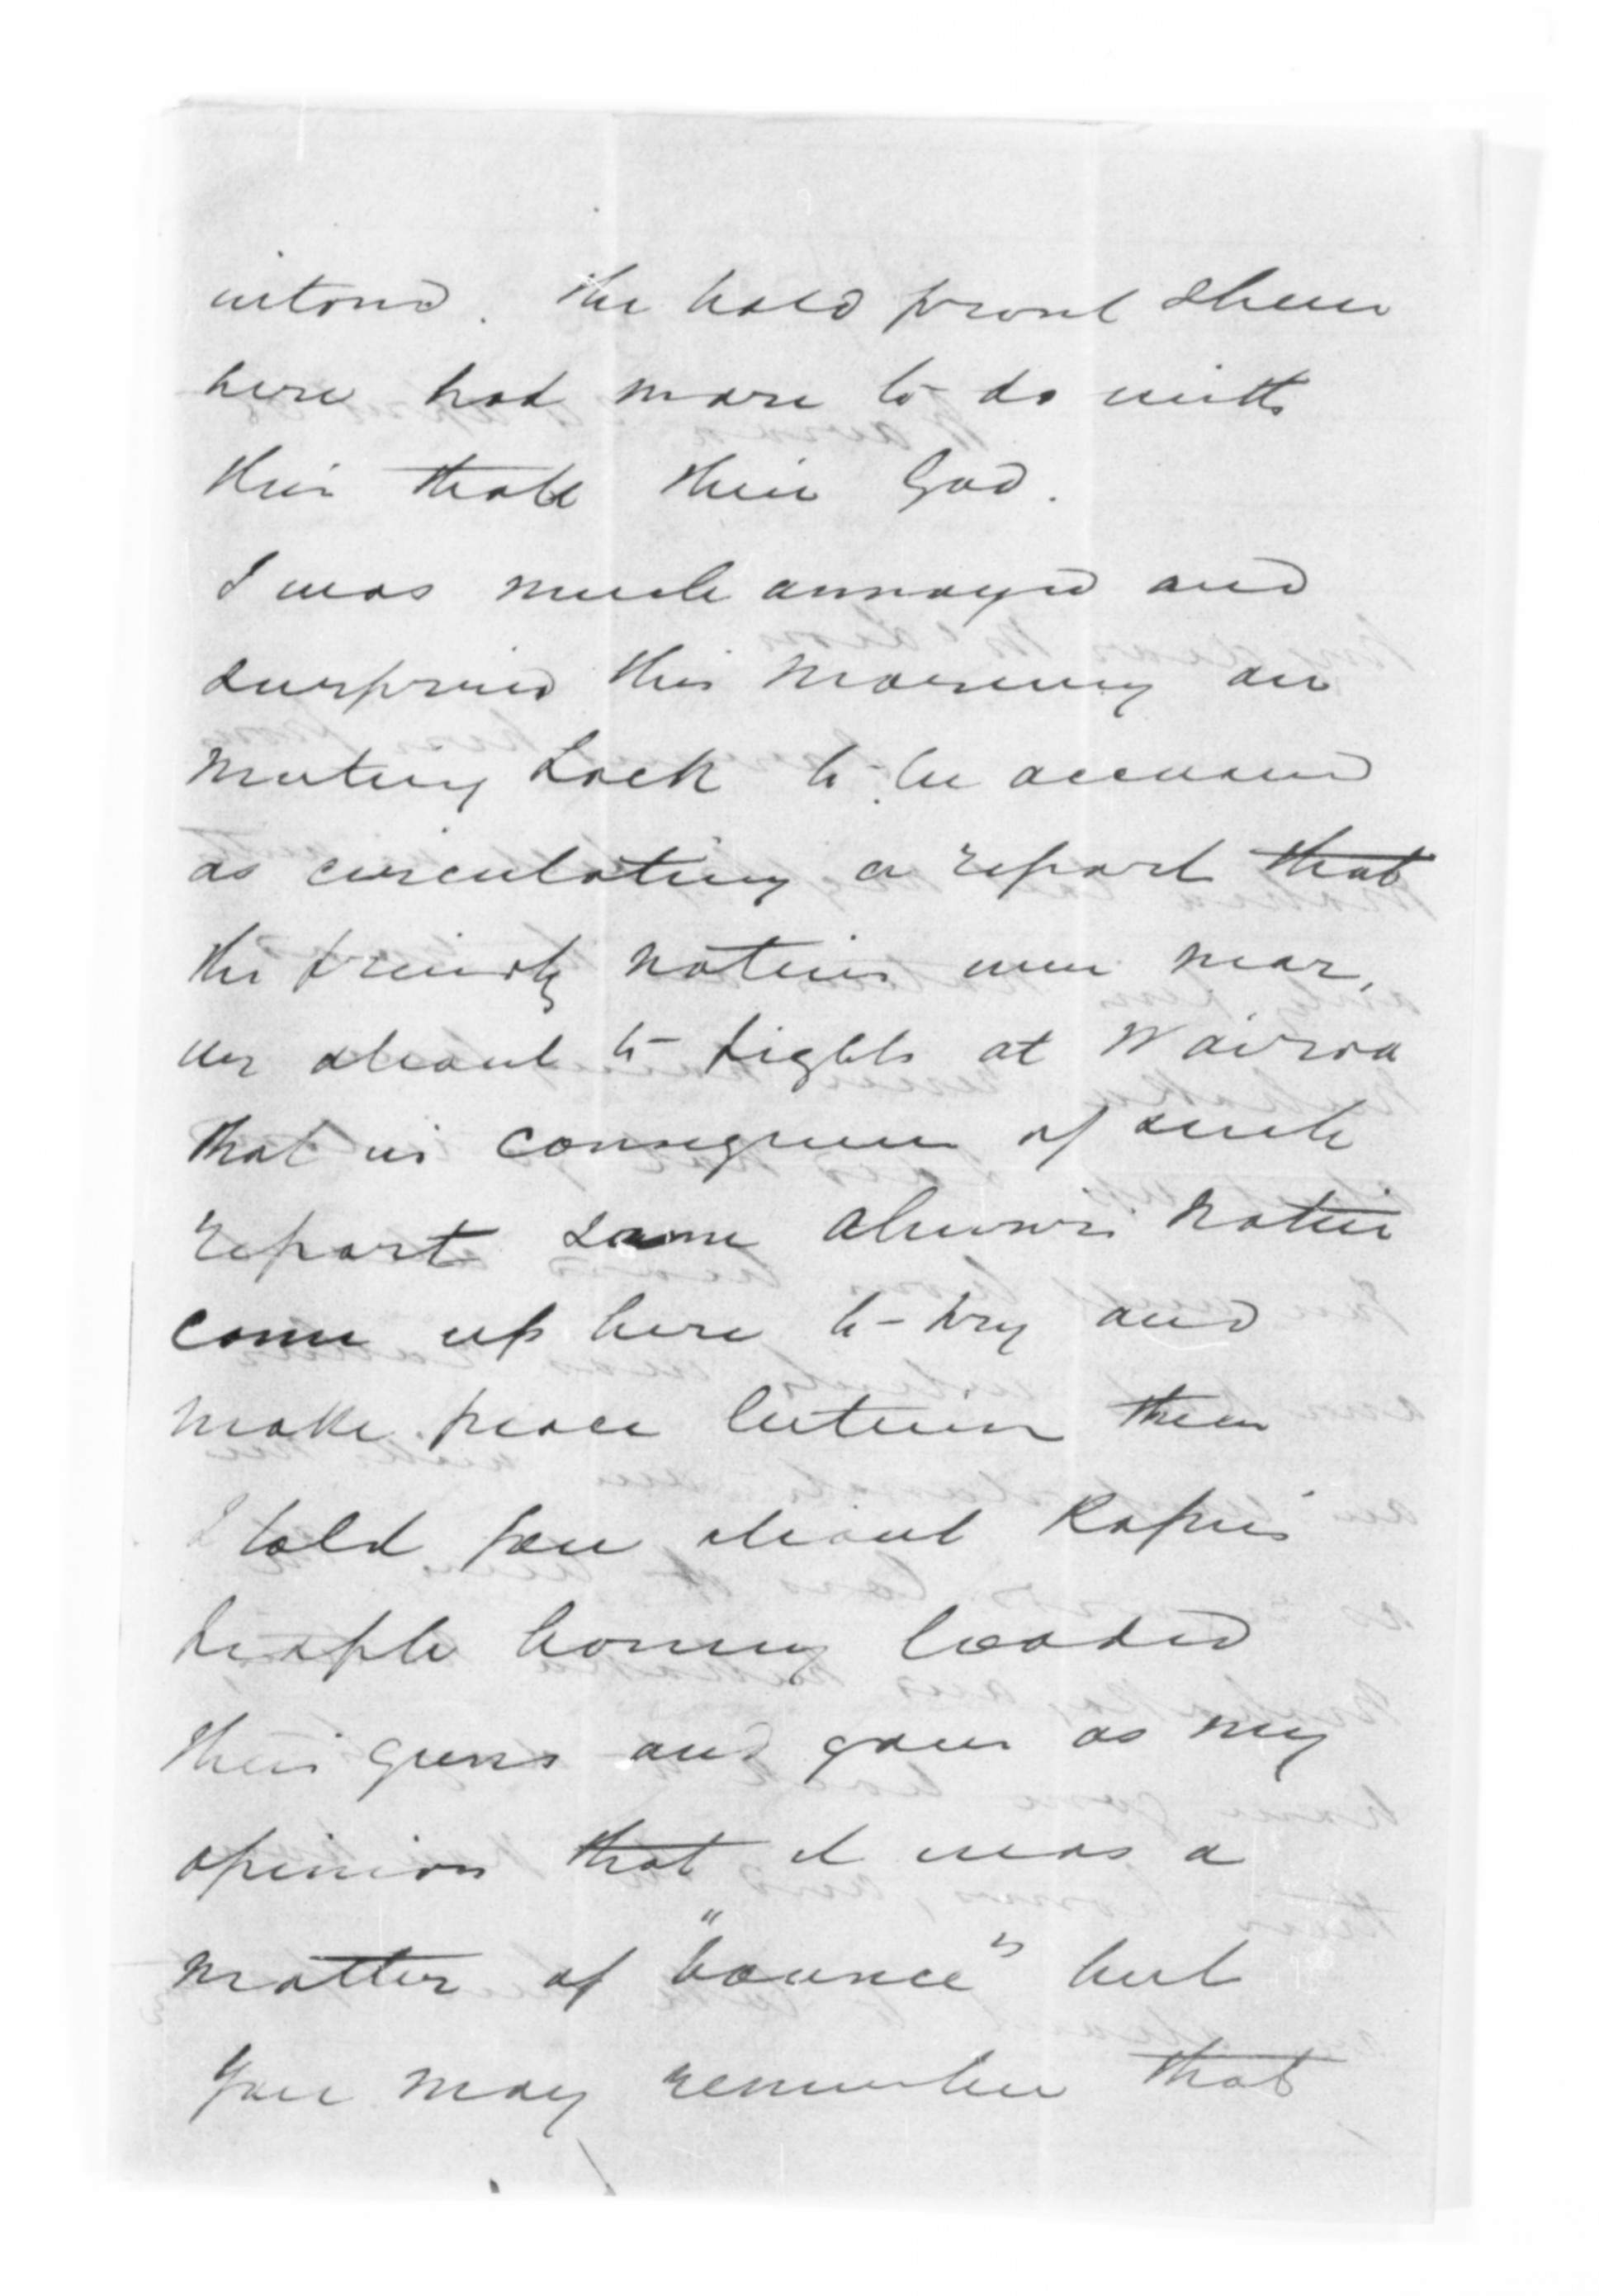 intend. The bold front shewn
here had more to do with
this than their God.
I was much annoyed and
surprised this morning on
meeting Lock to be accused
as circulating a report that
the friendly natives were near
ly about to fight at Wairoa
that in consequence of such
report some Ahuriri natives
come up here to try and
make peace between them
I told you about Kopu's
people having loaded
their guns and gave as my
opinion that it was a
matter of "bounce" but
you may remember that